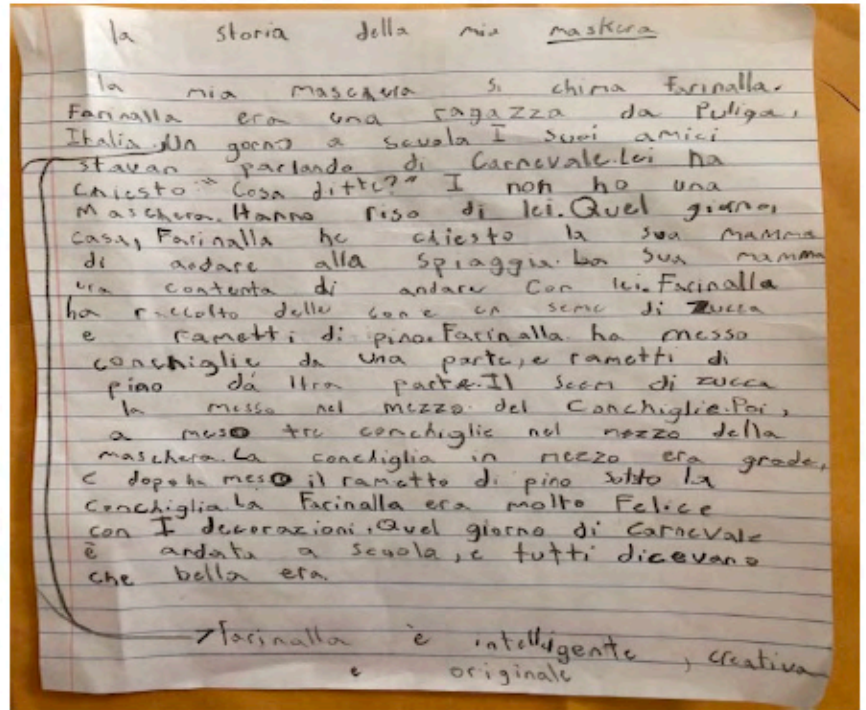 la storia della mia maskera
la mia maschera si chima Farinalla.
Farinalla era una ragazza da Puliga,
Ithalia. Un gorno a scuola I suoi amici
stavan parlando di Carnevale. Lei ha
chiesto "Cosa ditte?" I non ho una
Maschera. Hanno riso di lei. Quel giorno,
casa, Farinalla ha chiesto la sua mamma
di andare alla spiaggia. La sua mamma
era contenta di andare con lei. Farinalla
ha raccolto delle con e un seme di zucca
e rametti di pino. Farinalla ha messo
conchiglie da una parte, e rametti di
pino da ltra parte. Il seem di zucca
la messo nel mezzo del Conchiglie. Poi,
a meso tre conchiglie nel mezzo della
maschera. La conchiglia in mezzo era grade,
e dopo ha meso il rametto di pino sotto la
conchiglia. La Farinalla era molto Felice
con I decorazioni. Quel giorno di Carnevale
è andata a scuola, e tutti dicevano
che bella era.
Farinalla è intelligente, creativa
e originale